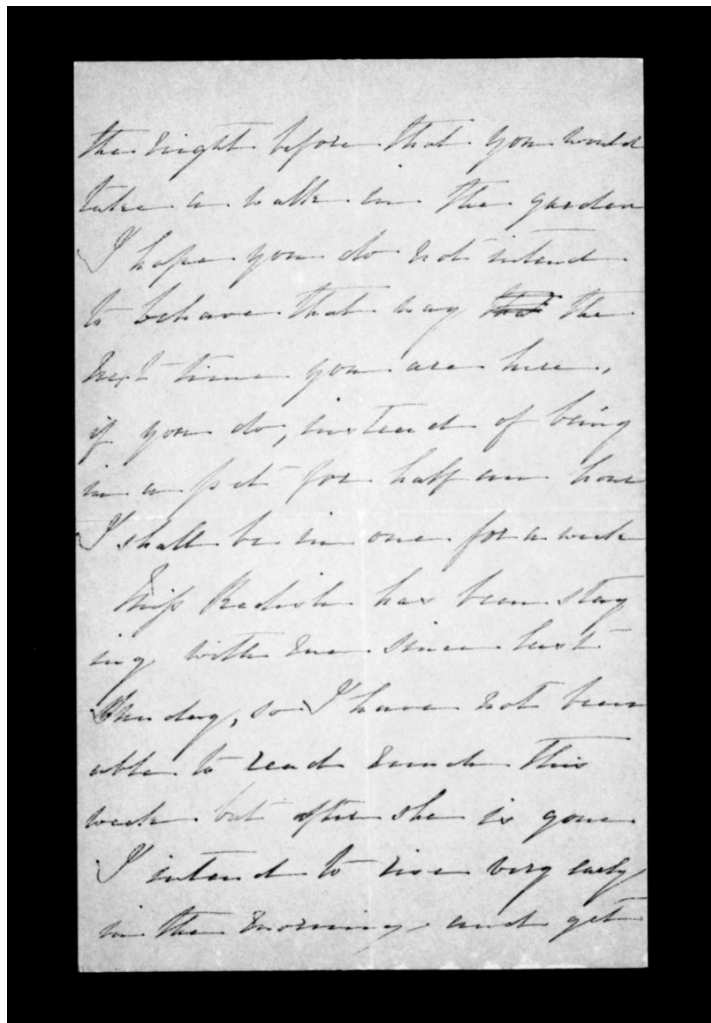 the night before that you would
take a walk in the garden
I hope you do not intend
to behave that way the
next time you are here,
if you do, instead of being
in a pet for half an hour
I shall be in one for a week
Miss Redish has been stay
ing with me since last
day, so I have not been
able to read much this
week but after she is gone
I intend to rise very early
in the morning, and get